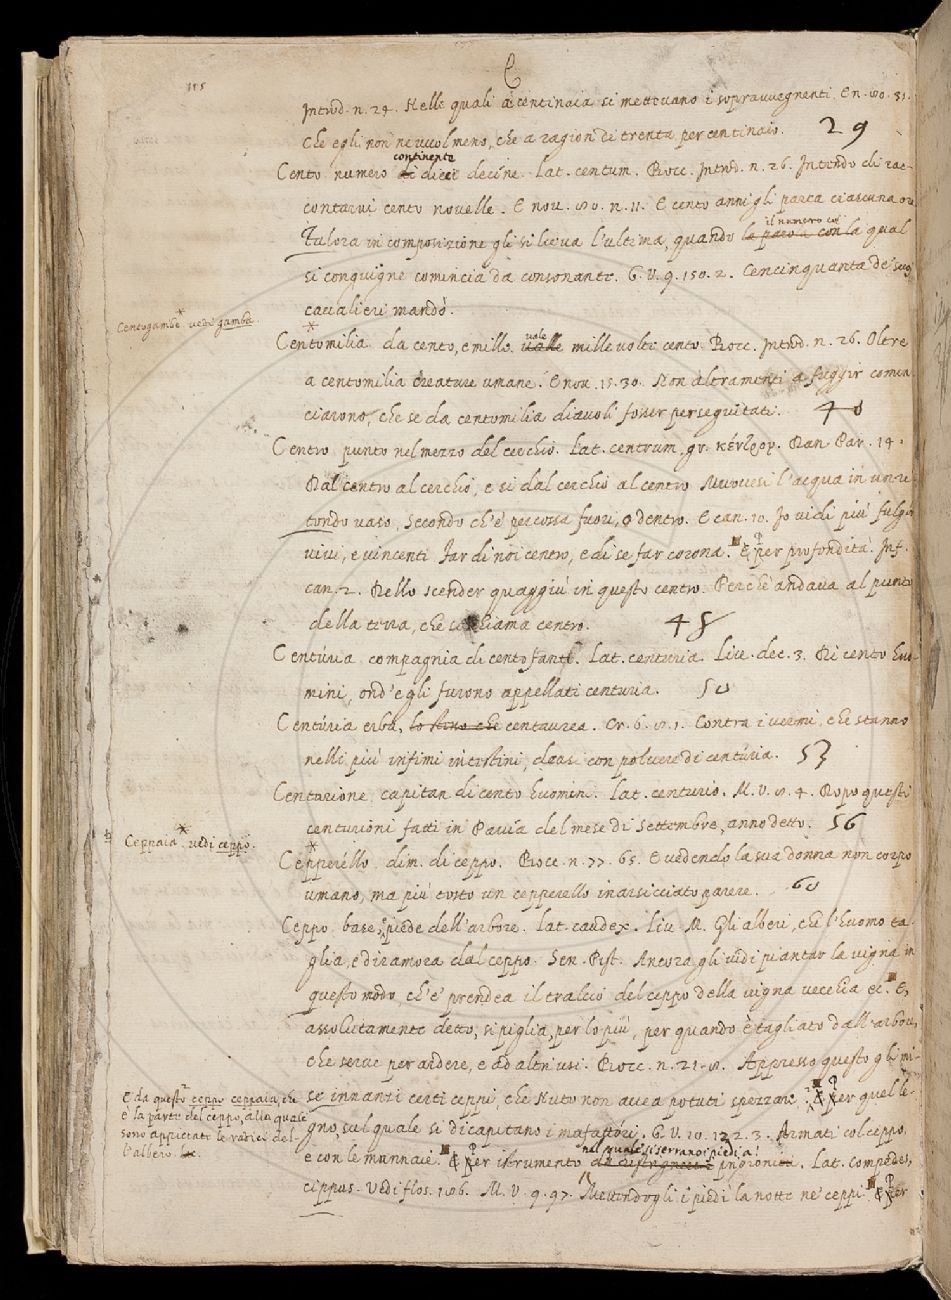 C
Introd. n. 24. Nelle quali a centinaia si mettevano i sopravvegnenti. E n. 80. 31.
Che egli non ne vuol meno, che a ragion di trenta per centinaio. 29
continente
Cento. numero di dieci decine. Lat. centum. Bocc. Introd. n. 26. Intendo di rac-
contarvi cento novelle. E nov. 80. n. 11. E cento anni gli parea ciascuna ora
il numero co'
Talora in composizione gli si leva l'ultima, quando la parola con la qual
si congiugne comincia da consonante. G. V. 9. 150. 2. Cencinquanta de' suoi
cavalieri mandò.
Centogambe vedi gamba.
vale
Centomilia. da cento, e mille. valle mille volte cento. Bocc. Introd. n. 26. Oltre
a centomilia creature umane. E nov. 15. 30. Non altramenti a fuggir comin-
ciarono, che se da centomilia diavoli fosser perseguitati. 40
Centro. punto nel mezzo del cerchio. Lat. centrum, gr. κέντρον. Dan. Par. 14.
Dal centro al cerchio, e sì dal cerchio al centro Muovesi l'acqua in un ri-
tondo vaso, Secondo ch'è percossa fuori, o dentro. E can. 10. Io vidi più fulgor
vivi, e vincenti Far di noi centro, e di se far corona. E per profondità. Inf.
can. 2. Dello scender quaggiù in questo centro. Perchè andava al punto
della terra, che si chiama centro. 48
Centúria. compagnia di cento fanti. Lat. centuria. Liv. dec. 3. Di cento huo-
mini, ond'egli furono appellati centuria. 50
Centúria erba, lo stesso che centaurea. Cr. 6. Contra i vermi, che stanno
nelli più infimi intestini, deasi con polvere di centúria. 53
Centurione. capitan di cento huomini. Lat. centurio. M. V. 8. 4. Dopo questi
centurioni fatti in Pavia del mese di Settembre, anno detto. 56
Ceppaia. vedi ceppo.
Cepperello. dim. di ceppo. Bocc. n. 77. 65. E vedendo la sua donna non corpo
umano, ma più tosto un cepperello inarsicciato parere. 60
Ceppo. base, e piede dell'arbore. Lat. caudex. Liv. M. Gli alberi, che l'huomo ta-
glia, e diramora dal ceppo. Sen. Pist. Ancora gli vidi piantar la vigna in
questo modo ch'e' prendea il tralcio del ceppo della vigna vecchia ec. E,
assolutamente detto, si piglia, per lo più, per quando è tagliato dall'arbore,
che serve per ardere, e ad altri usi. Bocc. n. 21. Appresso questo gli mi-
se innanzi certi ceppi, che Nuto non avea potuti spezzare. E per quel le-
gno, sul quale si dicapitano i malfattori. G. V. 10. 122. 3. Armati col ceppo,
e con le mannaie. E per istrumento
nel quale si serrano i piedi a'
prigioni. Lat. compedes,
cippus. Vedi flos. 106. M. V. 9. 97. Mettendogli i piedi la notte ne' ceppi. E per
E da questo ceppo ceppaia, che
è la parte del ceppo, alla quale
sono appiccate le radici del-
l'albero.